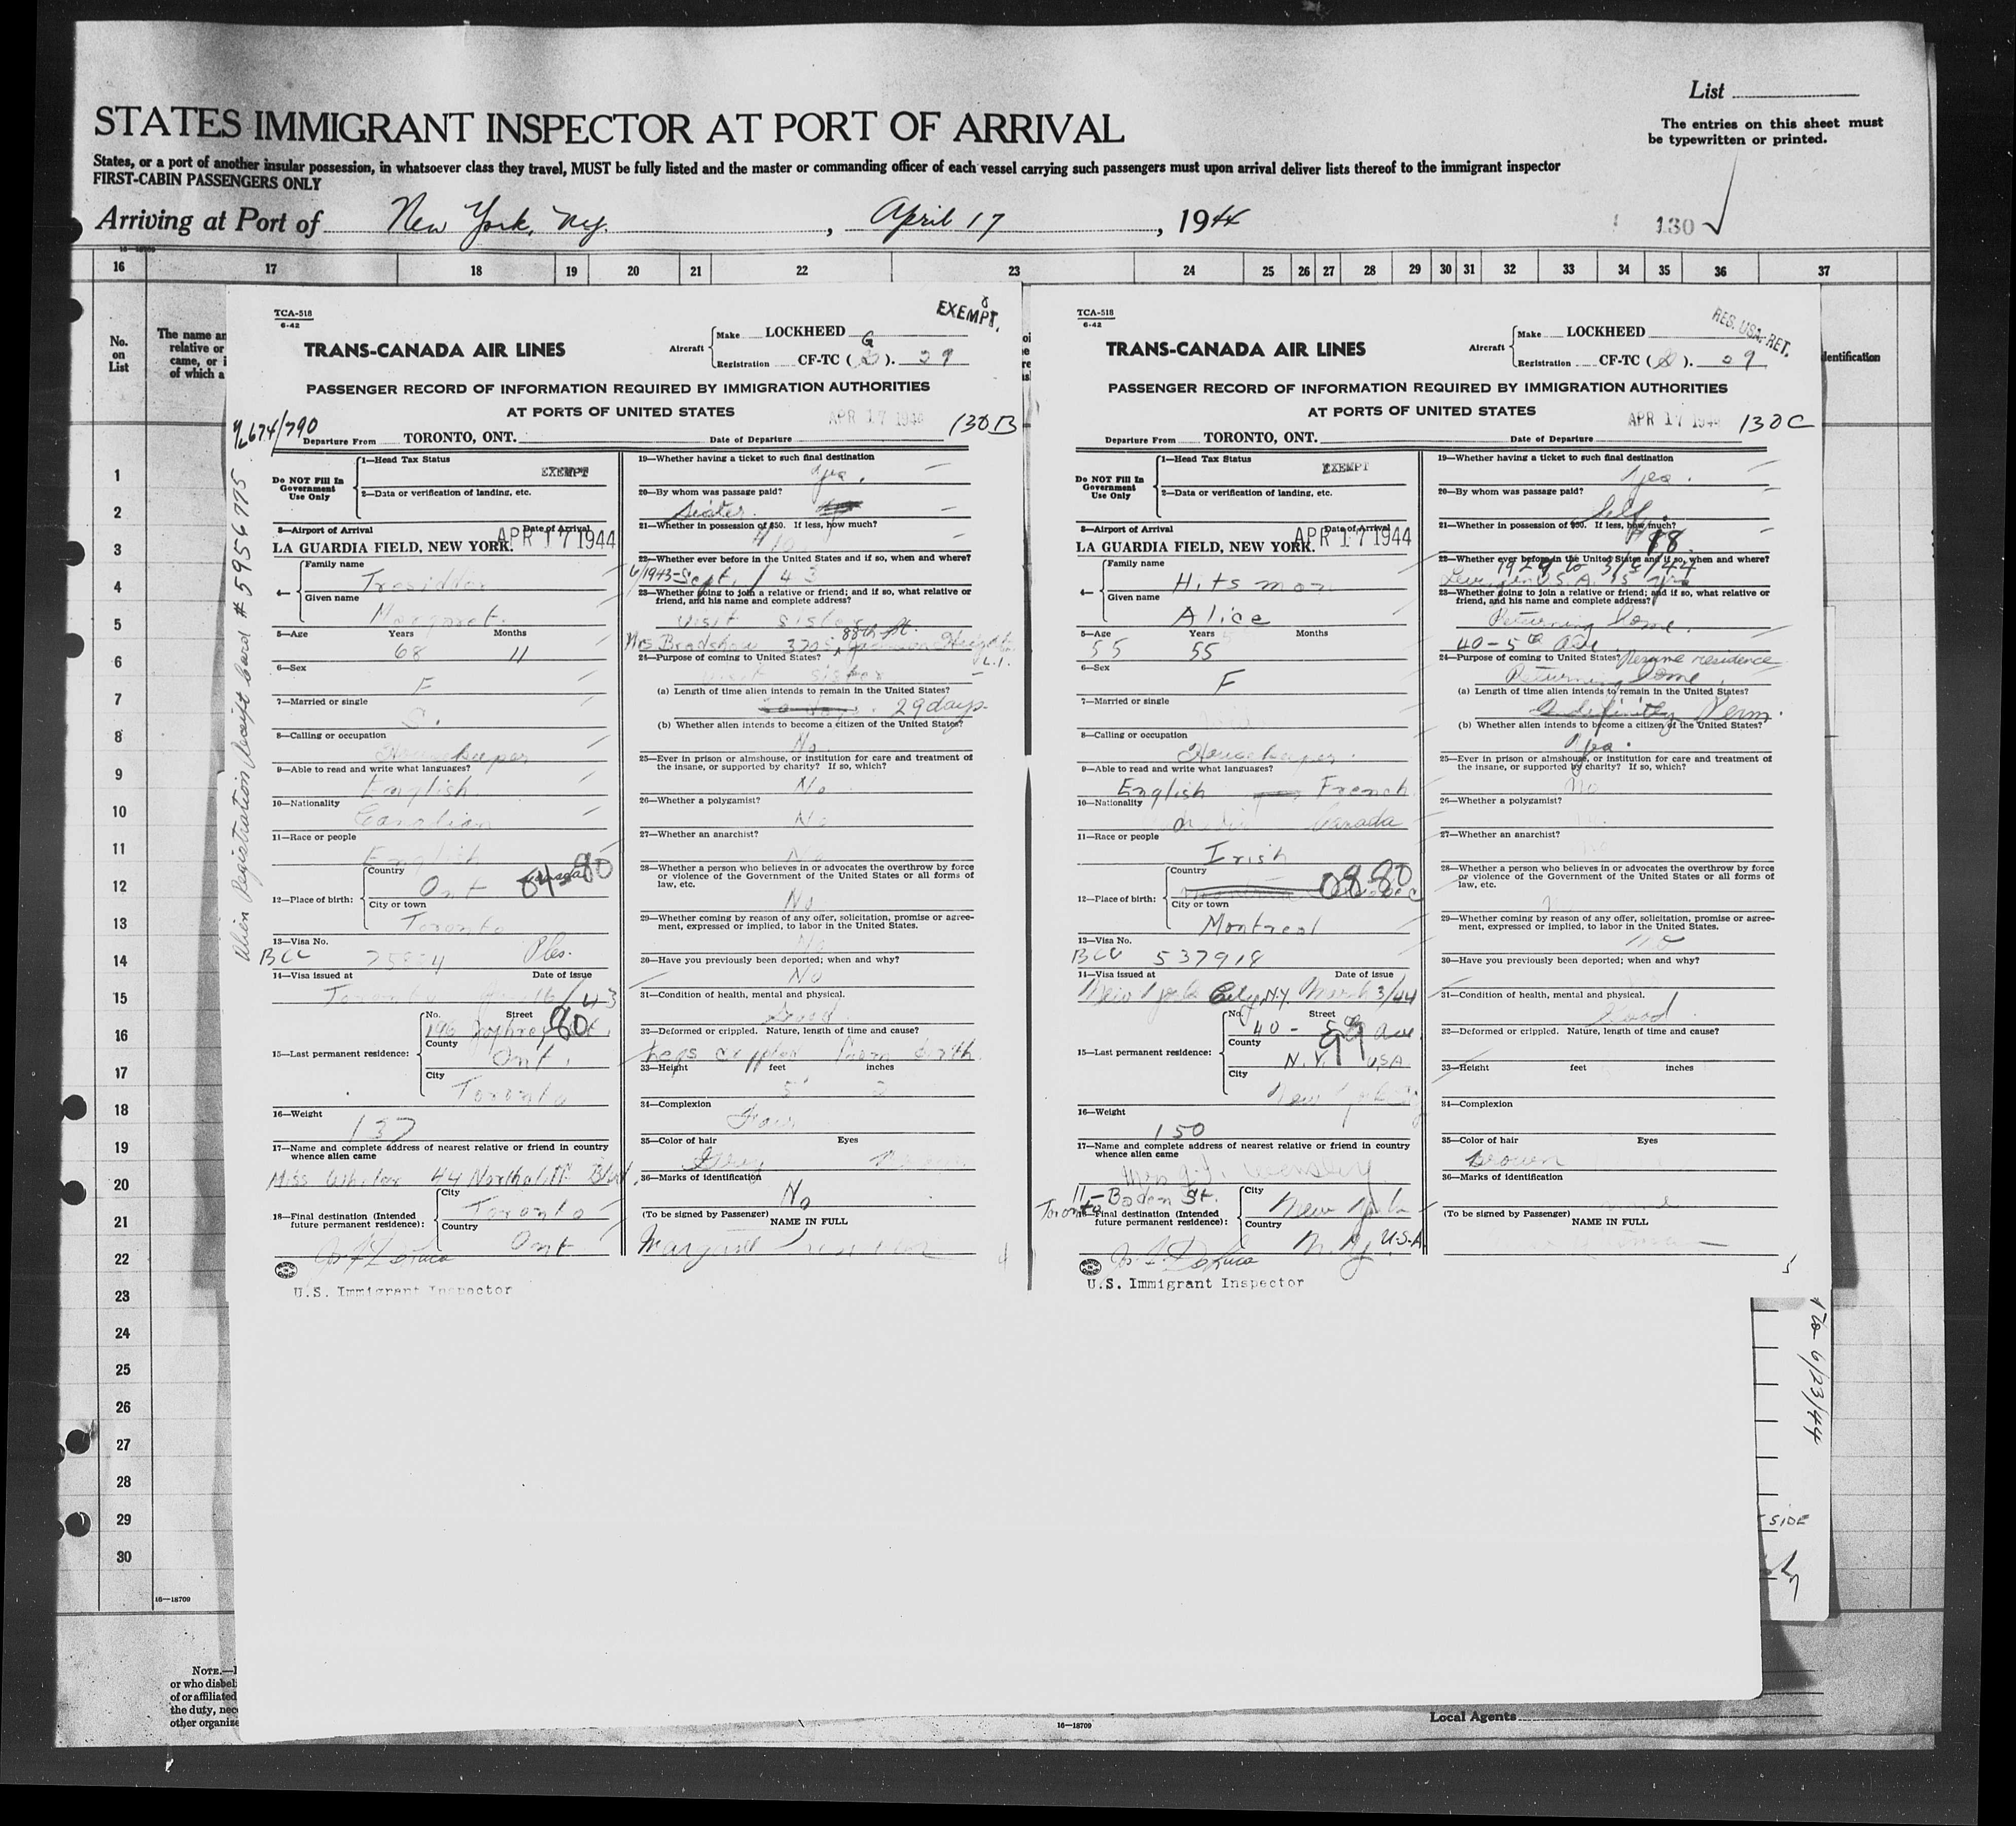 List
STATES IMMIGRANT INSPECTOR AT PORT OF ARRIVAL
The entries on this sheet must
be typewritten or printed.
States, or a port of another insular possession, in whatsoever class they travel, MUST be fully listed and the master or commanding officer of each vessel carrying such passengers must upon arrival deliver lists thereof to the immigrant inspector
FIRST-CABIN PASSENGERS ONLY
Arriving at Port of New York, Ny. , April 17 , 1944
130
16 17 18 19 20 21 22 23 24 25 26 27 28 29 30 31 32 33 34 35 36 37
No.
on
List
The name an
relative or
came, or i
of which a
dentification
1
2
3
4
5
6
7
8
9
10
11
12
13
14
15
16
17
18
19
20
21
22
23
24
25
26
27
28
29
30
TCA-518
6-42
EXEMPT.
TRANS-CANADA AIR LINES
Aircraft
Make LOCKHEED
Registration CF-TC ( G ). 29
PASSENGER RECORD OF INFORMATION REQUIRED BY IMMIGRATION AUTHORITIES
AT PORTS OF UNITED STATES
APR 17 1944
130B
674/790
Departure From TORONTO, ONT. Date of Departure
Alien Registration Receipt card # 5956775
Do NOT Fill In
Government
Use Only
1—Head Tax Status
EXEMPT
2—Data or verification of landing, etc.
3—Airport of Arrival Date of Arrival
LA GUARDIA FIELD, NEW YORK. APR 17 1944
4—
Family name
Given name
Margaret
5—Age Years Months
68 11
6—Sex
F
7—Married or single
S.
8—Calling or occupation
Housekeeper
9—Able to read and write what languages?
English
10—Nationality
Canadian
11—Race or people
English
12—Place of birth:
Country
Ont 84-80
City or town
Toronto
13—Visa No.
BCC
14—Visa issued at Date of issue
Toronto 16/43
15—Last permanent residence:
No. Street
196 80
County
Ont.
City
Toronto
16—Weight
137
17—Name and complete address of nearest relative or friend in country
whence alien came
Miss 44
18—Final destination (Intended
future permanent residence):
City
Toronto
Country
Ont
U.S. Immigrant Inspector
19—Whether having a ticket to such final destination
Yes.
20—By whom was passage paid?
Sister.
21—Whether in possession of $50. If less, how much?
22—Whether ever before in the United States and if so, when and where?
6/1943-Sept. / 43
23—Whether going to join a relative or friend; and if so, what relative or
friend, and his name and complete address?
visit sister
Mrs Bradshaw 3705 88th St.
L.I.
24—Purpose of coming to United States?
visit sister
(a) Length of time alien intends to remain in the United States?
29 days
(b) Whether alien intends to become a citizen of the United States?
No
25—Ever in prison or almshouse, or institution for care and treatment of
the insane, or supported by charity? If so, which?
No
26—Whether a polygamist?
No
27—Whether an anarchist?
No
28—Whether a person who believes in or advocates the overthrow by force
or violence of the Government of the United States or all forms of
law, etc.
No
29—Whether coming by reason of any offer, solicitation, promise or agree-
ment, expressed or implied, to labor in the United States.
No
30—Have you previously been deported; when and why?
No
31—Condition of health, mental and physical.
Good
32—Deformed or crippled. Nature, length of time and cause?
Legs crippled from birth
33—Height feet inches
5' 2
34—Complexion
Fair
35—Color of hair Eyes
Grey
36—Marks of identification
No
(To be signed by Passenger)
NAME IN FULL
Margaret
TCA-518
6-42
RES. USA. RET.
TRANS-CANADA AIR LINES
Aircraft
Make LOCKHEED
Registration CF-TC ( ). 29
PASSENGER RECORD OF INFORMATION REQUIRED BY IMMIGRATION AUTHORITIES
AT PORTS OF UNITED STATES
APR 17 1944
130C
Departure From TORONTO, ONT. Date of Departure
Do NOT Fill In
Government
Use Only
1—Head Tax Status
EXEMPT
2—Data or verification of landing, etc.
3—Airport of Arrival Date of Arrival
LA GUARDIA FIELD, NEW YORK. APR 17 1944
4—
Family name
Hitsman
Given name
Alice
5—Age Years Months
55 55
6—Sex
F
7—Married or single
8—Calling or occupation
Housekeeper.
9—Able to read and write what languages?
English French
10—Nationality
Canada
11—Race or people
Irish
12—Place of birth:
Country
08-80
City or town
Montreal
13—Visa No.
BCC 537918
14—Visa issued at Date of issue
New York City, N.Y. March 3/44
15—Last permanent residence:
No. Street
40 - 5th Ave 99
County
N.Y. USA
City
New York
16—Weight
150
17—Name and complete address of nearest relative or friend in country
whence alien came
Mrs
11 - Baden St.
Toronto
18—Final destination (Intended
future permanent residence):
City
New York
Country
N.Y. U.S.A.
U.S. Immigrant Inspector
19—Whether having a ticket to such final destination
Yes.
20—By whom was passage paid?
Self
21—Whether in possession of $50. If less, how much?
18
22—Whether ever before in the United States and if so, when and where?
1929 to 3/5/44
U.S.A. 15 yrs
23—Whether going to join a relative or friend; and if so, what relative or
friend, and his name and complete address?
Returning home.
40 - 5th Ave
24—Purpose of coming to United States? Resume residence
Returning home.
(a) Length of time alien intends to remain in the United States?
Indefinitely Perm.
(b) Whether alien intends to become a citizen of the United States?
Yes.
25—Ever in prison or almshouse, or institution for care and treatment of
the insane, or supported by charity? If so, which?
No
26—Whether a polygamist?
27—Whether an anarchist?
No
28—Whether a person who believes in or advocates the overthrow by force
or violence of the Government of the United States or all forms of
law, etc.
29—Whether coming by reason of any offer, solicitation, promise or agree-
ment, expressed or implied, to labor in the United States.
no
30—Have you previously been deported; when and why?
31—Condition of health, mental and physical.
Good
32—Deformed or crippled. Nature, length of time and cause?
33—Height feet inches
34—Complexion
35—Color of hair Eyes
Brown
36—Marks of identification
(To be signed by Passenger)
NAME IN FULL
To 6/23/44
SIDE
16—18709
NOTE.—
or who disbel
of or affiliated
the duty, nec
other organize
16—18709
Local Agents